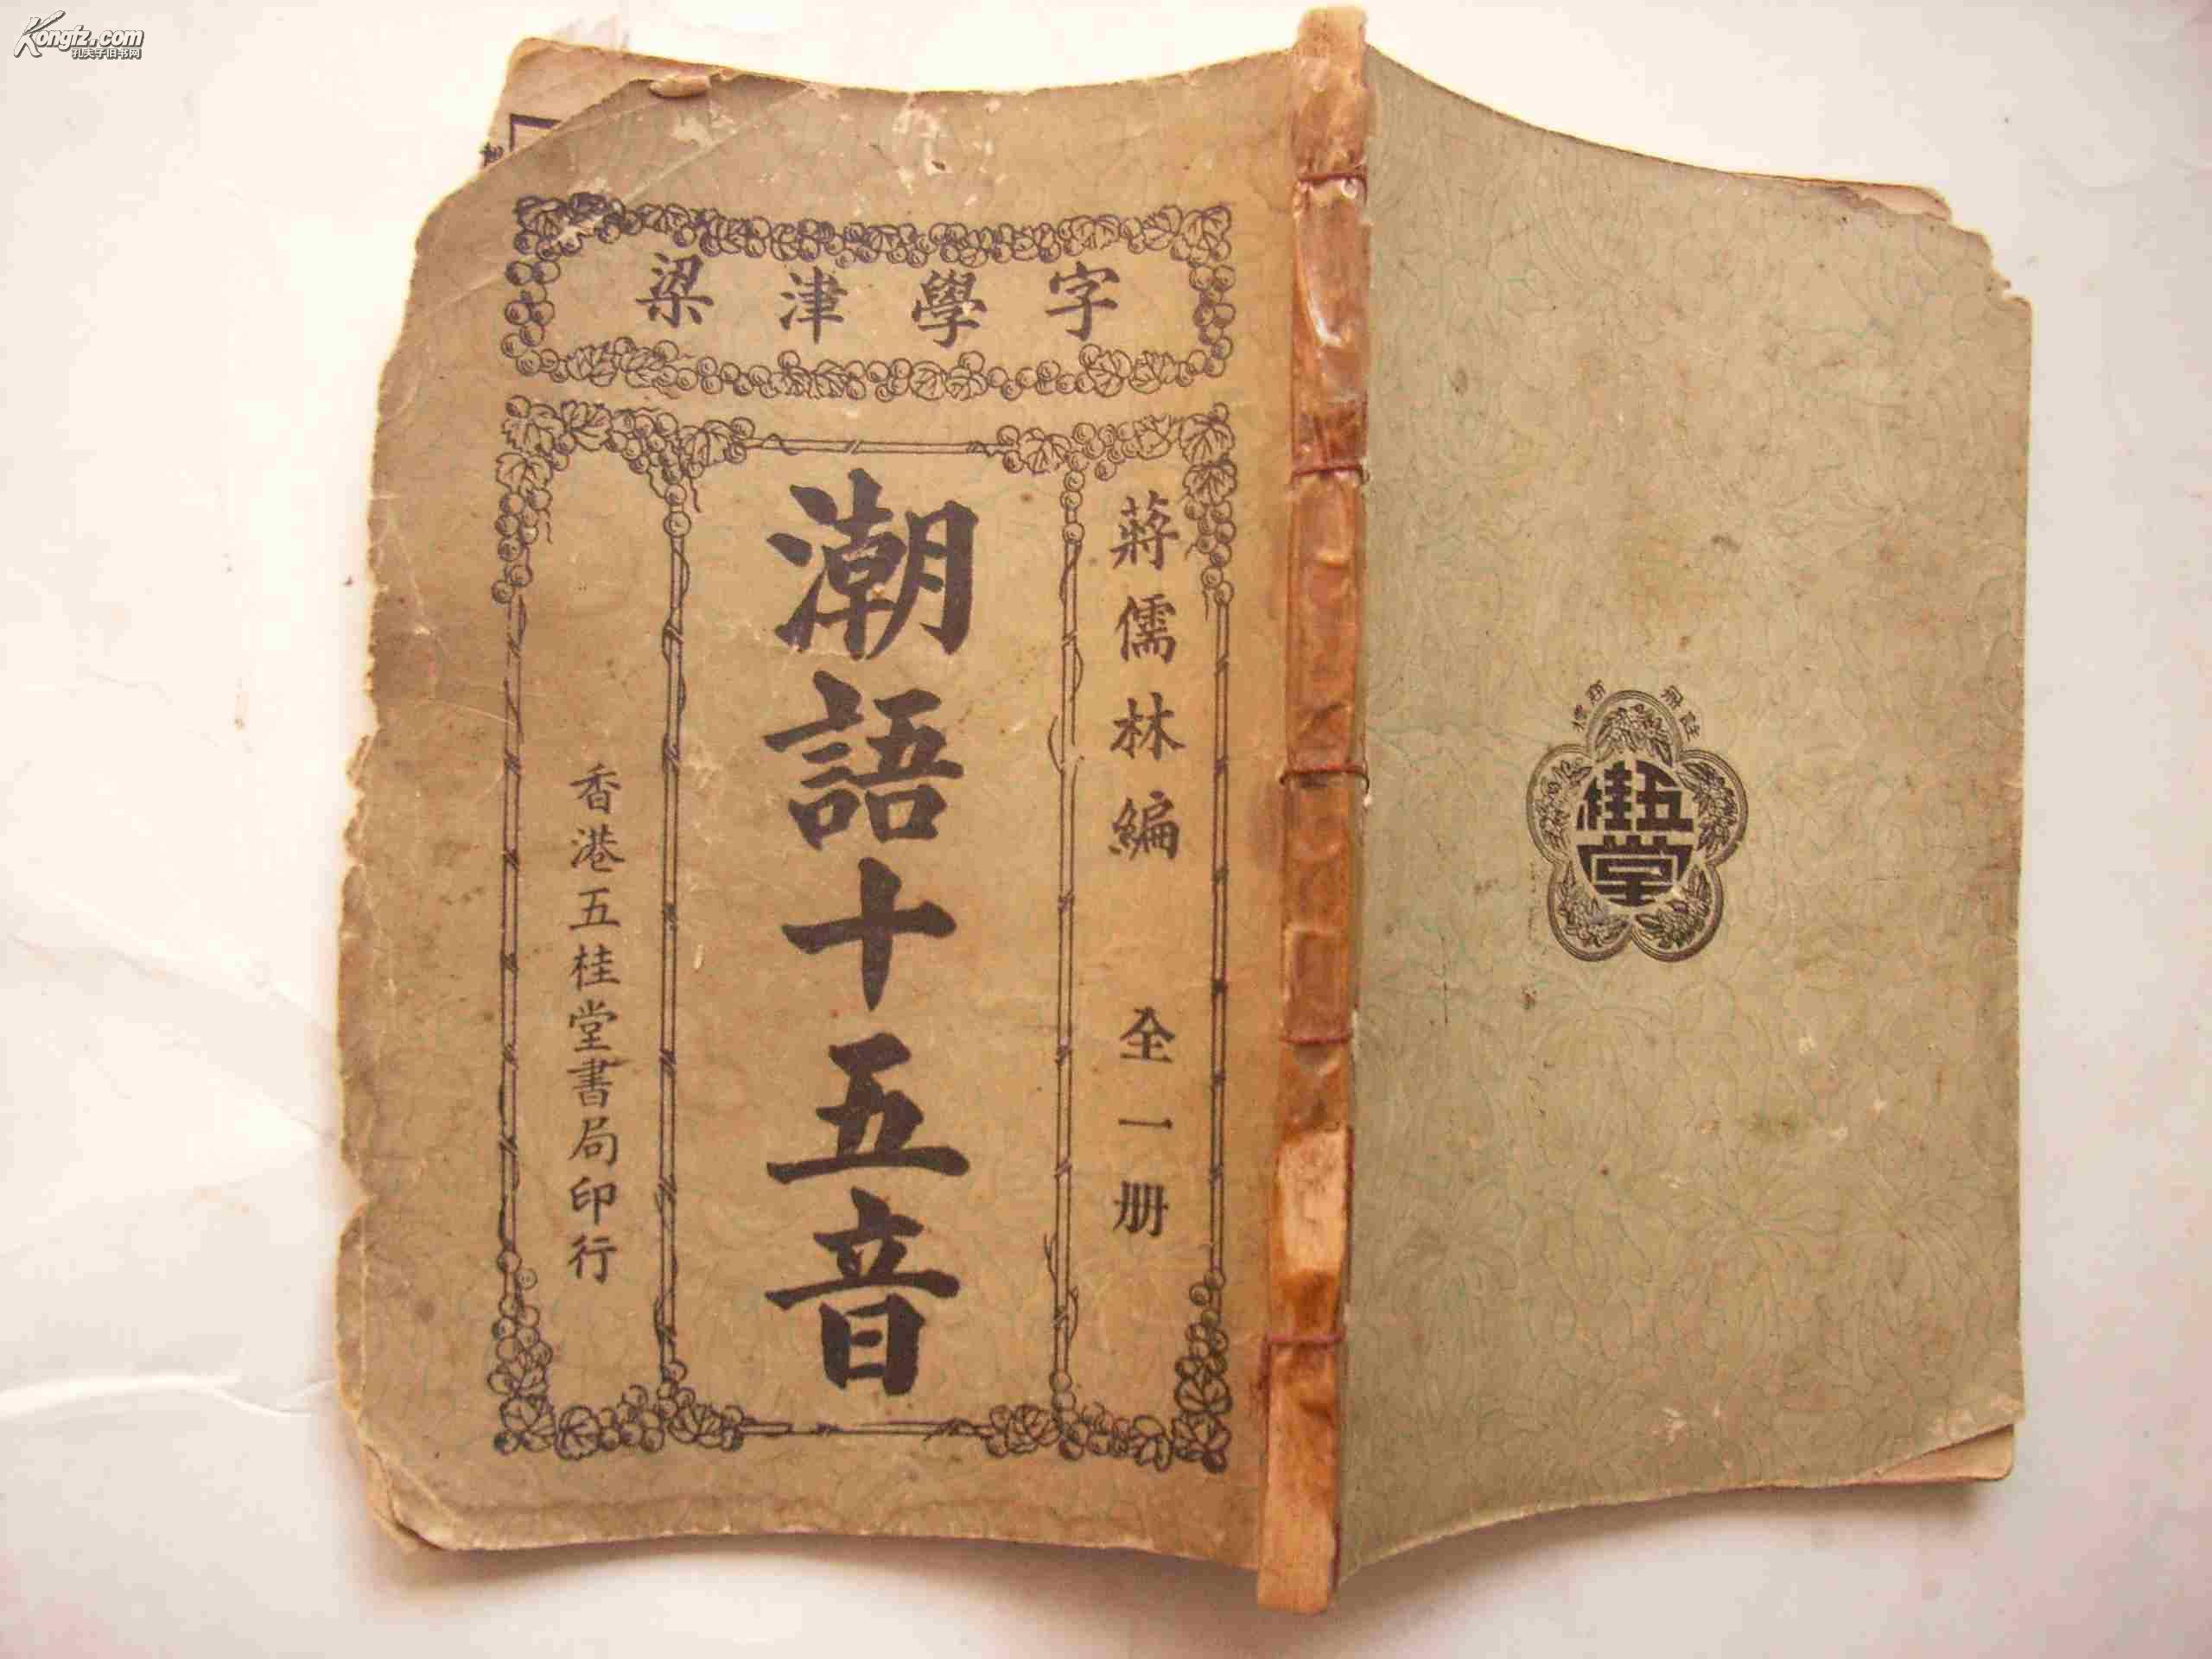 Kongfz.com
孔夫子旧书网
字學津梁
蔣儒林編 全一册
潮語十五音
香港五桂堂書局印行
註冊商標
五桂堂